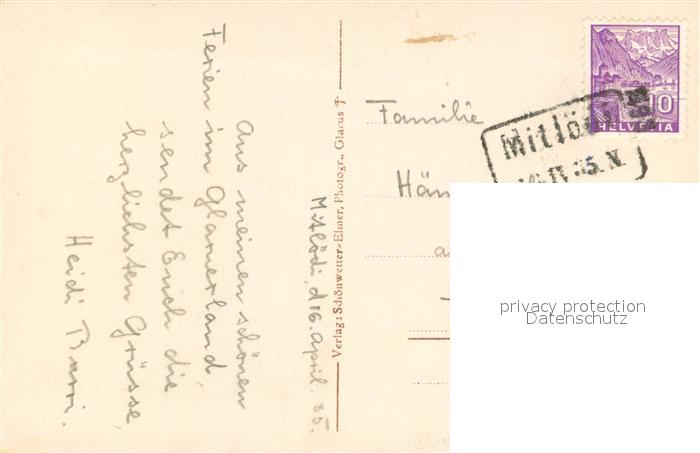 Mitlödi, d 16. April. 35.
Aus meinen schönen
Ferien im Glarnerland,
sendet Euch die
herzlichsten Grüsse,
Heidi
Verlag: Schönwetter-Elmer, Photogr., Glarus
Familie
10
HELVETIA
Mitlödi
IV 35
privacy protection
Datenschutz